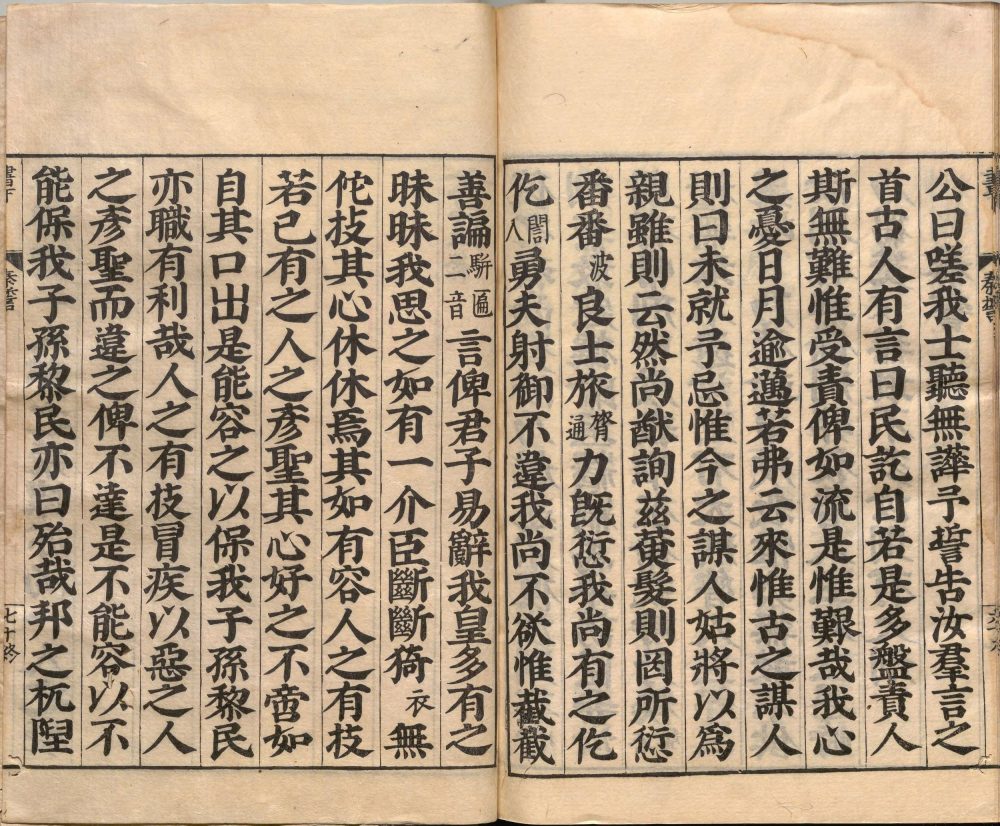 公曰嗟我士聽無譁予誓告汝羣言之
首古人有言曰民訖自若是多盤責人
斯無難惟受責俾如流是惟艱哉我心
之憂日月逾邁若弗云來惟古之謀人
則曰未就予忌惟今之謀人姑將以爲
親雖則云然尚猷詢茲黃髮則罔所愆
番番波良士旅膂通力旣愆我尚有之仡
仡勇夫射御不違我尚不欲惟截截
善諞駢徧二音言俾君子易辭我皇多有之
昧昧我思之如有一介臣斷斷猗衣無
佗技其心休休焉其如有容人之有技
若已有之人之彥聖其心好之不啻如
自其口出是能容之以保我子孫黎民
亦職有利哉人之有技冒疾以惡之人
之彥聖而違之俾不達是不能容以不
能保我子孫黎民亦曰殆哉邦之杌隉
秦誓
七十終